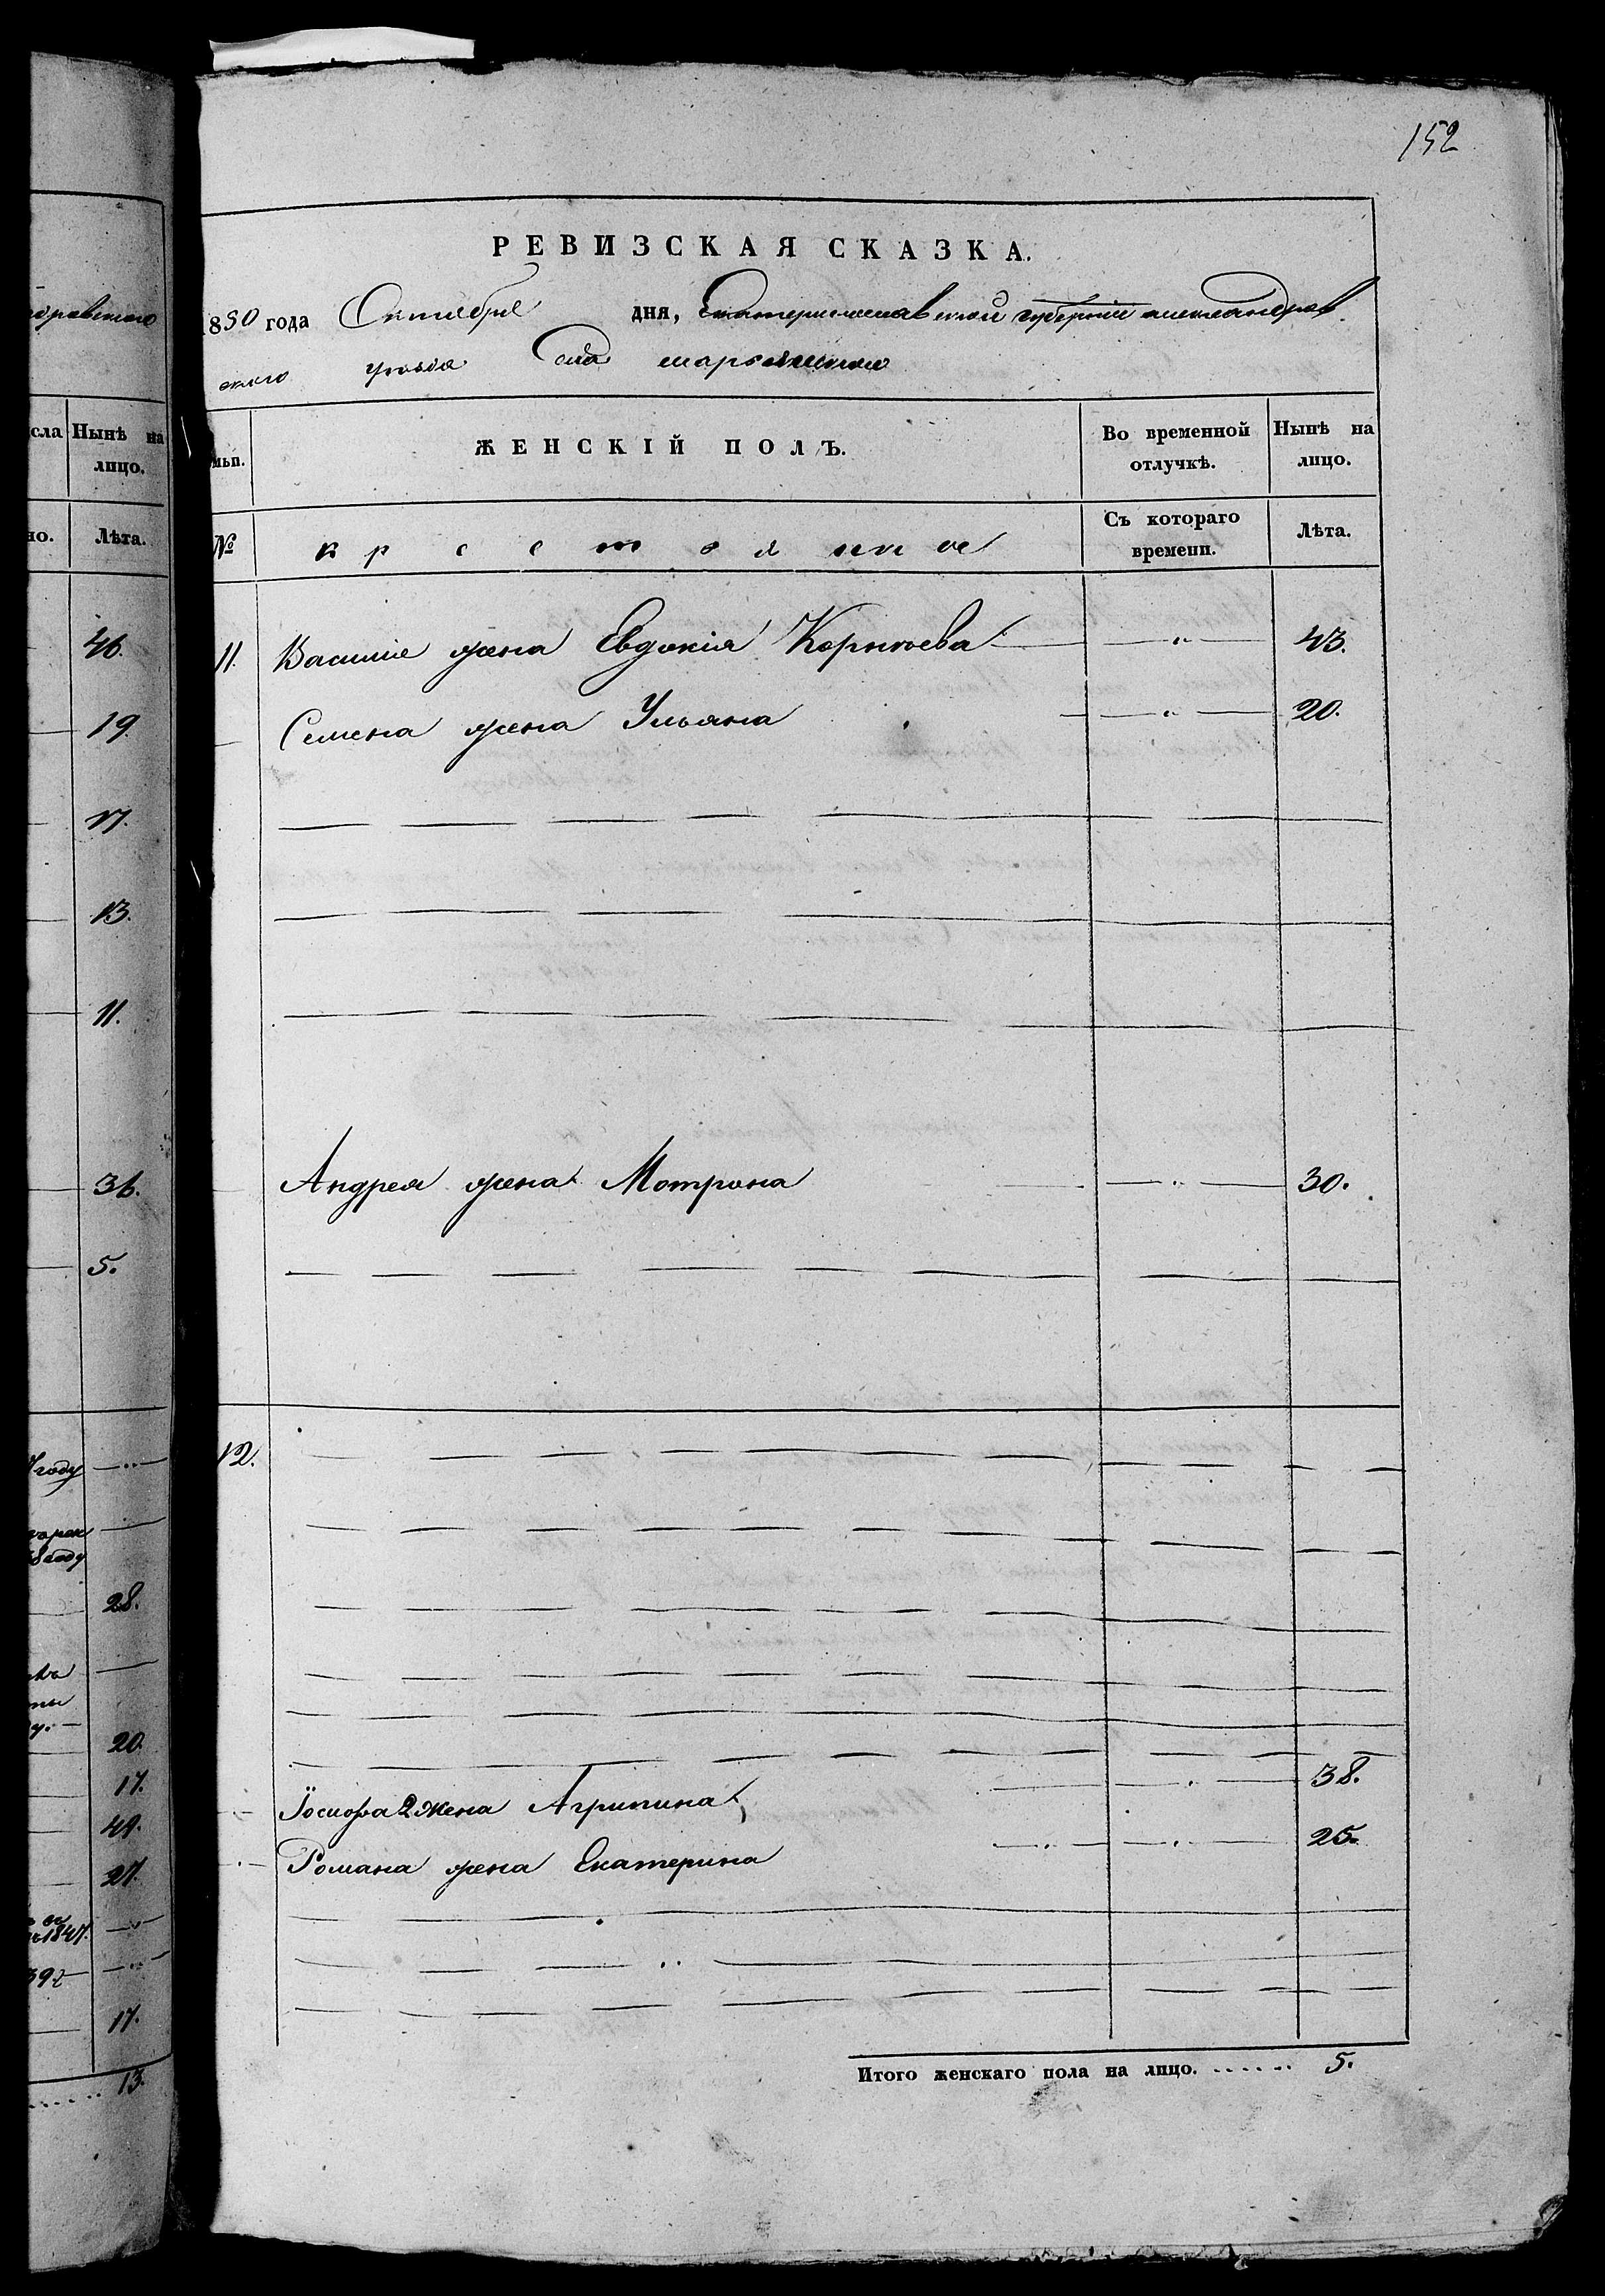 152
РЕВИЗСКАЯ СКАЗКА.
1850 года Октября дня, Екатеринославской губернии Александров
ского уезда Села
мьи. ЖЕНСКІЙ ПОЛЪ. Во временной отлучкѣ. Нынѣ на лицо.
№ Съ котораго времени. Лѣта.
11. Василія жена Евдокія Корнѣева — " — 43.
— Семена жена Ульяна — " — 20.
Андрея жена Мотрона — " — 30.
12.
Іосифа 2 жена Агрипина — " — 38.
Романа жена Екатерина — " — 25.
Итого женскаго пола на лицо. . . . . . . 5.
сла Нынѣ на лицо.
но. Лѣта.
46.
19.
17.
13.
11.
36.
5.
году
28.
20.
17.
49.
27.
1847.
17.
13.